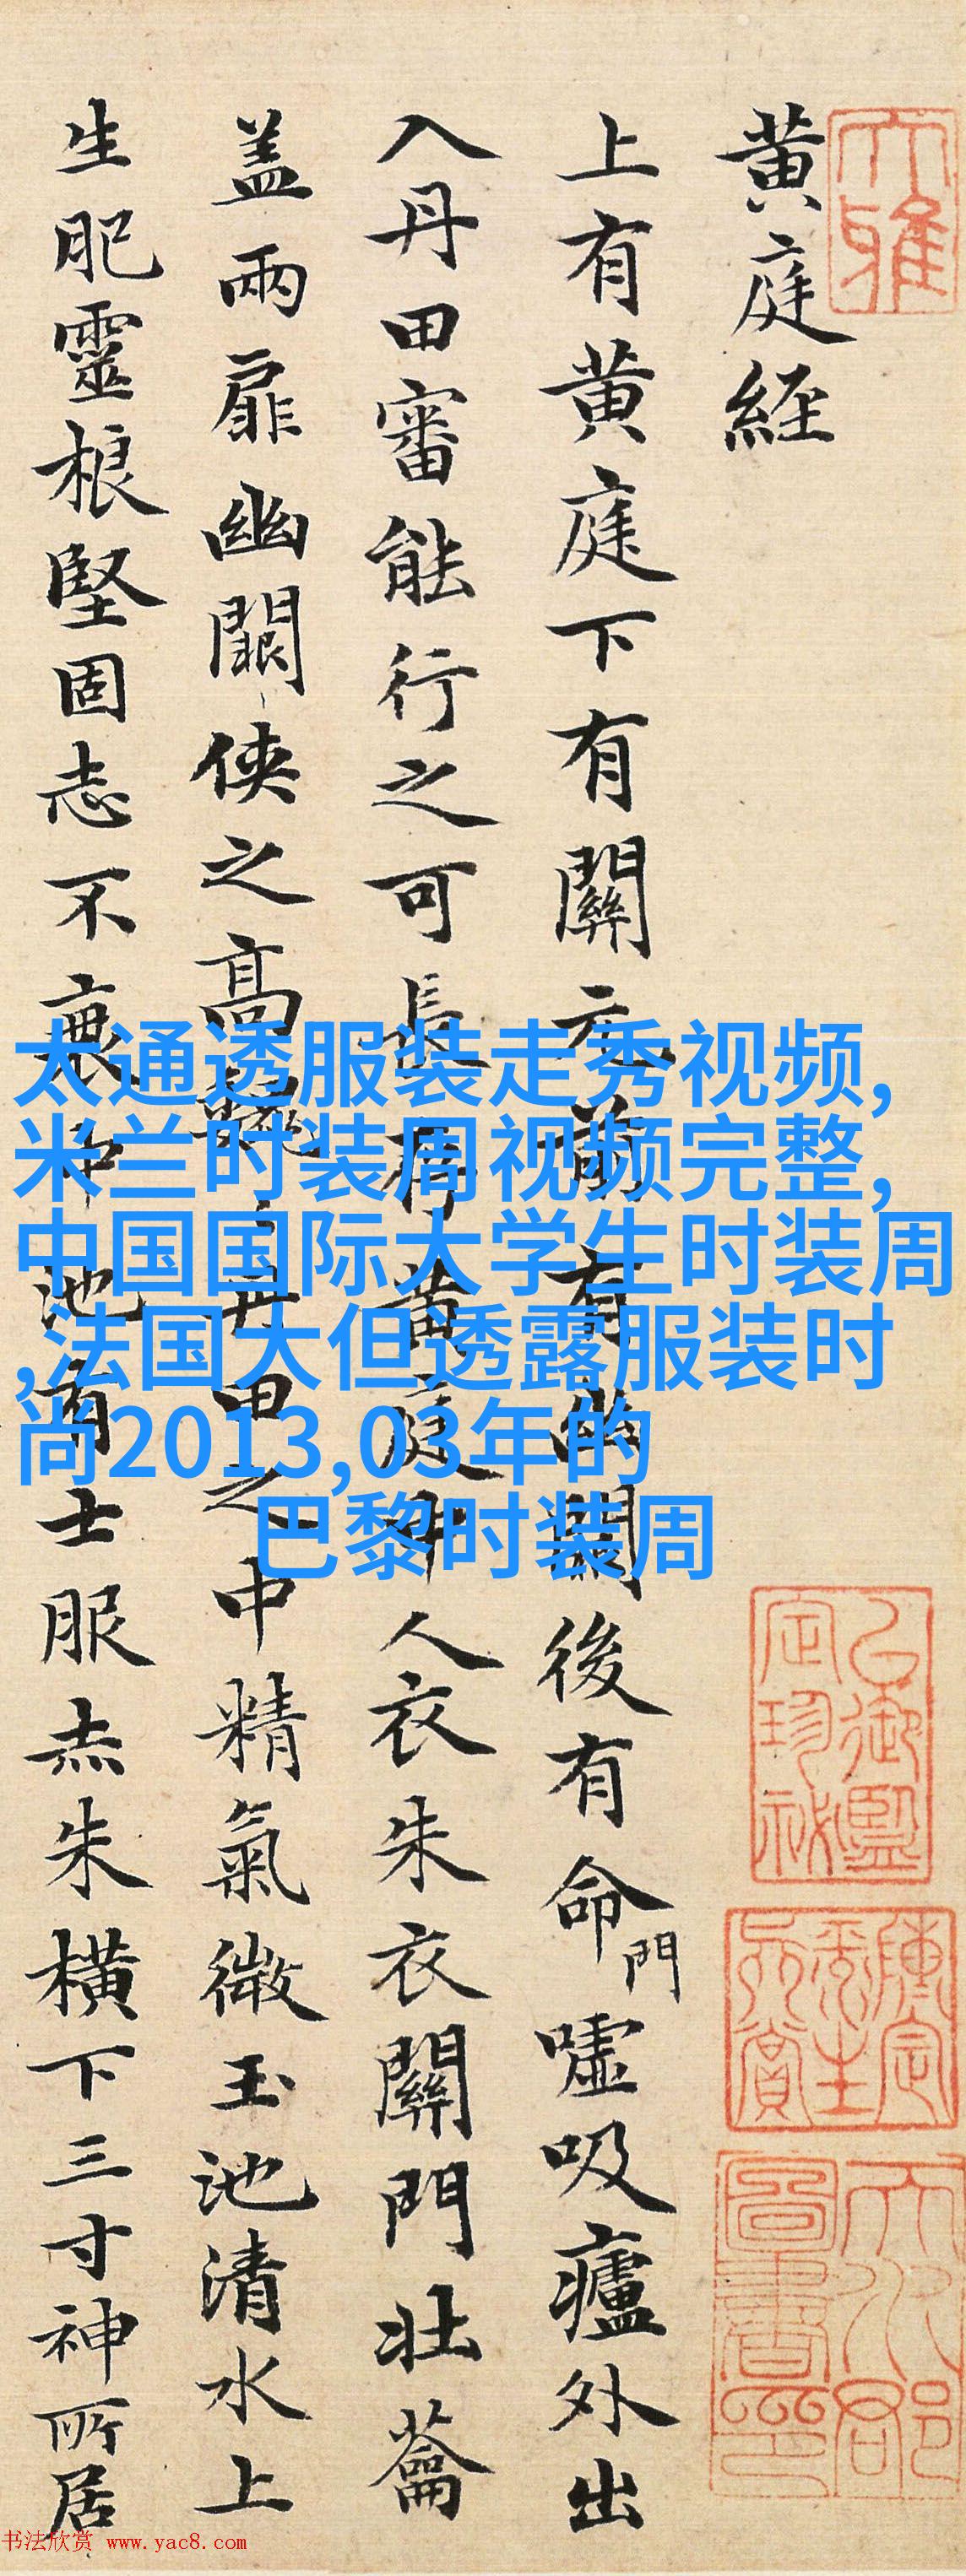 大雅
黄庭經
上有黄庭下有關元前有幽闕後有命門嘘吸廬外出
入丹田審能行之可長存黄庭中人衣朱衣關門壮蘥
盖兩扉幽闕侠之高巍丹田之中精氣微玉池清水上
生肥靈根堅固志不衰中池有士服赤朱横下三寸神所居
太通透服装走秀视频,
米兰时装周视频完整,
中国国际大学生时装周
,法国大但透露服装时
尚2013,03年的
巴黎时装周
书法欣赏 www.yac8.com